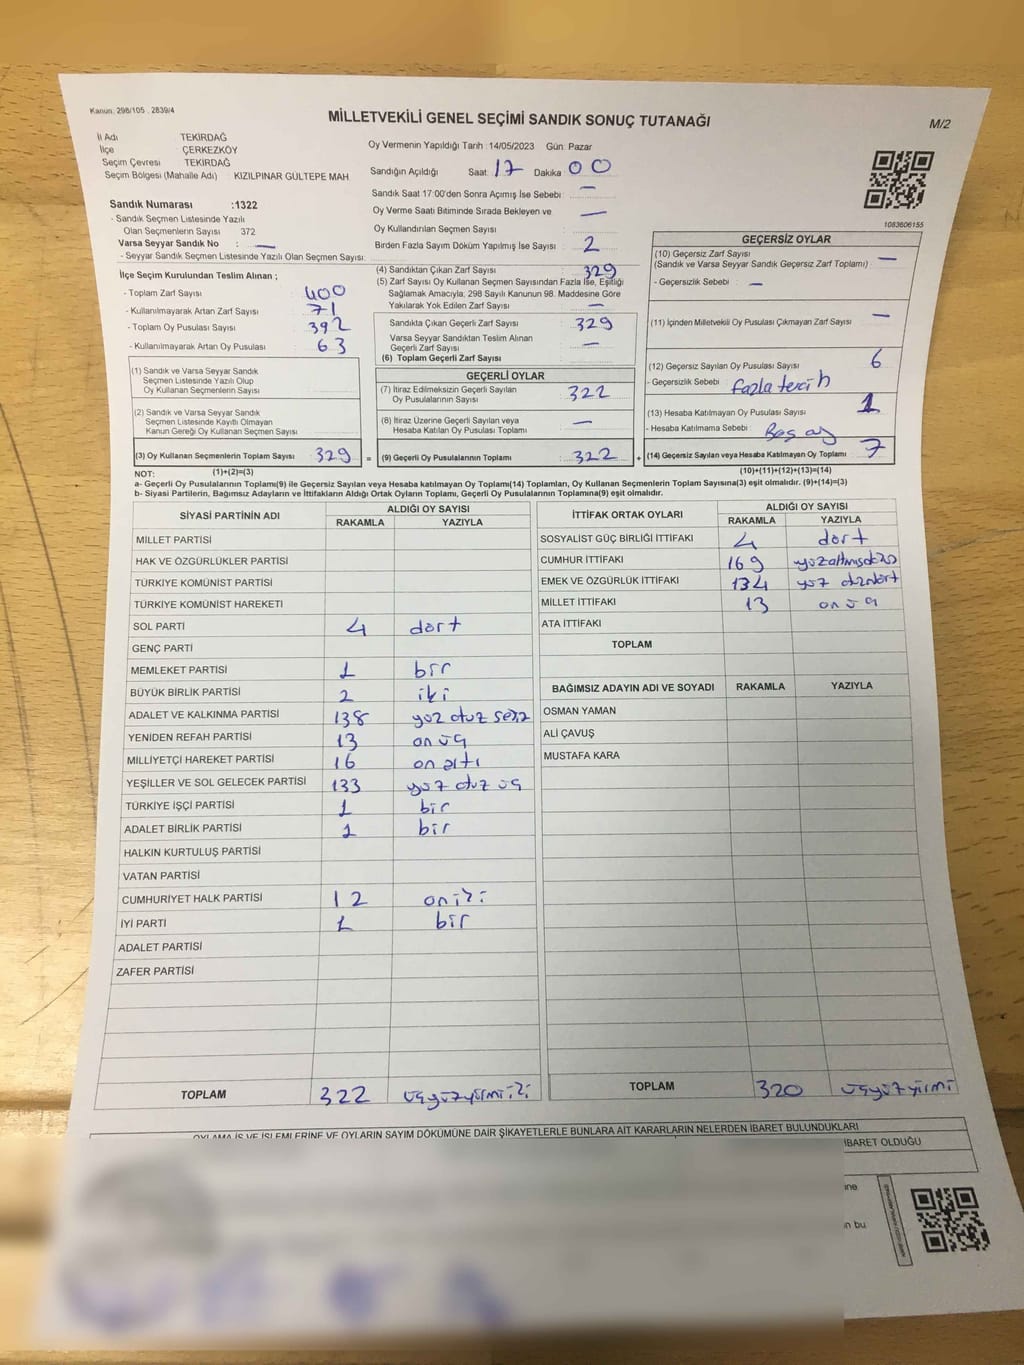 Kanun: 298/105 . 2839/4
MİLLETVEKİLİ GENEL SEÇİMİ SANDIK SONUÇ TUTANAĞI
M/2
İl Adı TEKİRDAĞ
İlçe ÇERKEZKÖY
Seçim Çevresi TEKİRDAĞ
Seçim Bölgesi (Mahalle Adı) : KIZILPINAR GÜLTEPE MAH
Sandık Numarası :1322
- Sandık Seçmen Listesinde Yazılı
Olan Seçmenlerin Sayısı 372
Varsa Seyyar Sandık No : —
- Seyyar Sandık Seçmen Listesinde Yazılı Olan Seçmen Sayısı:
Oy Vermenin Yapıldığı Tarih : 14/05/2023 Gün: Pazar
Sandığın Açıldığı Saat: 17 Dakika 00
Sandık Saat 17:00'den Sonra Açımış İse Sebebi : —
Oy Verme Saati Bitiminde Sırada Bekleyen ve —
Oy Kullandırılan Seçmen Sayısı :
Birden Fazla Sayım Döküm Yapılmış İse Sayısı : 2
1083606155
İlçe Seçim Kurulundan Teslim Alınan ;
- Toplam Zarf Sayısı : 400
- Kullanılmayarak Artan Zarf Sayısı : 71
- Toplam Oy Pusulası Sayısı : 392
- Kullanılmayarak Artan Oy Pusulası : 63
(1) Sandık ve Varsa Seyyar Sandık
Seçmen Listesinde Yazılı Olup
Oy Kullanan Seçmenlerin Sayısı
(2) Sandık ve Varsa Seyyar Sandık
Seçmen Listesinde Kayıtlı Olmayan
Kanun Gereği Oy Kullanan Seçmen Sayısı
(3) Oy Kullanan Seçmenlerin Toplam Sayısı 329 =
(4) Sandıktan Çıkan Zarf Sayısı : 329
(5) Zarf Sayısı Oy Kullanan Seçmen Sayısından Fazla İse, Eşitliği
Sağlamak Amacıyla; 298 Sayılı Kanunun 98. Maddesine Göre
Yakılarak Yok Edilen Zarf Sayısı : —
Sandıkta Çıkan Geçerli Zarf Sayısı : 329
Varsa Seyyar Sandıktan Teslim Alınan
Geçerli Zarf Sayısı : —
(6) Toplam Geçerli Zarf Sayısı :
GEÇERLİ OYLAR
(7) İtiraz Edilmeksizin Geçerli Sayılan
Oy Pusulalarının Sayısı : 322
(8) İtiraz Üzerine Geçerli Sayılan veya
Hesaba Katılan Oy Pusulası Toplamı : —
(9) Geçerli Oy Pusulalarının Toplamı : 322 +
GEÇERSİZ OYLAR
(10) Geçersiz Zarf Sayısı
(Sandık ve Varsa Seyyar Sandık Geçersiz Zarf Toplamı) : —
- Geçersizlik Sebebi : —
(11) İçinden Milletvekili Oy Pusulası Çıkmayan Zarf Sayısı : —
(12) Geçersiz Sayılan Oy Pusulası Sayısı : 6
- Geçersizlik Sebebi : fazla tercih
(13) Hesaba Katılmayan Oy Pusulası Sayısı : 1
- Hesaba Katılmama Sebebi : Boş oy
(14) Geçersiz Sayılan veya Hesaba Katılmayan Oy Toplamı : 7
NOT: (1)+(2)=(3)
(10)+(11)+(12)+(13)=(14)
a- Geçerli Oy Pusulalarının Toplamı(9) ile Geçersiz Sayılan veya Hesaba katılmayan Oy Toplamı(14) Toplamları, Oy Kullanan Seçmenlerin Toplam Sayısına(3) eşit olmalıdır. (9)+(14)=(3)
b- Siyasi Partilerin, Bağımsız Adayların ve İttifakların Aldığı Ortak Oyların Toplamı, Geçerli Oy Pusulalarının Toplamına(9) eşit olmalıdır.
SİYASİ PARTİNİN ADI ALDIĞI OY SAYISI
RAKAMLA YAZIYLA
MİLLET PARTİSİ
HAK VE ÖZGÜRLÜKLER PARTİSİ
TÜRKİYE KOMÜNİST PARTİSİ
TÜRKİYE KOMÜNİST HAREKETİ
SOL PARTİ 4 dört
GENÇ PARTİ
MEMLEKET PARTİSİ 1 bir
BÜYÜK BİRLİK PARTİSİ 2 iki
ADALET VE KALKINMA PARTİSİ 138 yüz otuz sekiz
YENİDEN REFAH PARTİSİ 13 on üç
MİLLİYETÇİ HAREKET PARTİSİ 16 on altı
YEŞİLLER VE SOL GELECEK PARTİSİ 133 yüz otuz üç
TÜRKİYE İŞÇİ PARTİSİ 1 bir
ADALET BİRLİK PARTİSİ 1 bir
HALKIN KURTULUŞ PARTİSİ
VATAN PARTİSİ
CUMHURİYET HALK PARTİSİ 12 oniki
İYİ PARTİ 1 bir
ADALET PARTİSİ
ZAFER PARTİSİ
TOPLAM 322 üçyüzyirmiiki
İTTİFAK ORTAK OYLARI ALDIĞI OY SAYISI
RAKAMLA YAZIYLA
SOSYALİST GÜÇ BİRLİĞİ İTTİFAKI 4 dört
CUMHUR İTTİFAKI 169
EMEK VE ÖZGÜRLÜK İTTİFAKI 134 yüz otuzdört
MİLLET İTTİFAKI 13 on üç
ATA İTTİFAKI
TOPLAM
BAĞIMSIZ ADAYIN ADI VE SOYADI RAKAMLA YAZIYLA
OSMAN YAMAN
ALİ ÇAVUŞ
MUSTAFA KARA
TOPLAM 320 üçyüzyirmi
OYLAMA İŞ VE İŞLEMLERİNE VE OYLARIN SAYIM DÖKÜMÜNE DAİR ŞİKAYETLERLE BUNLARA AİT KARARLARIN NELERDEN İBARET BULUNDUKLARI
İBARET OLDUĞU
ine
n bu